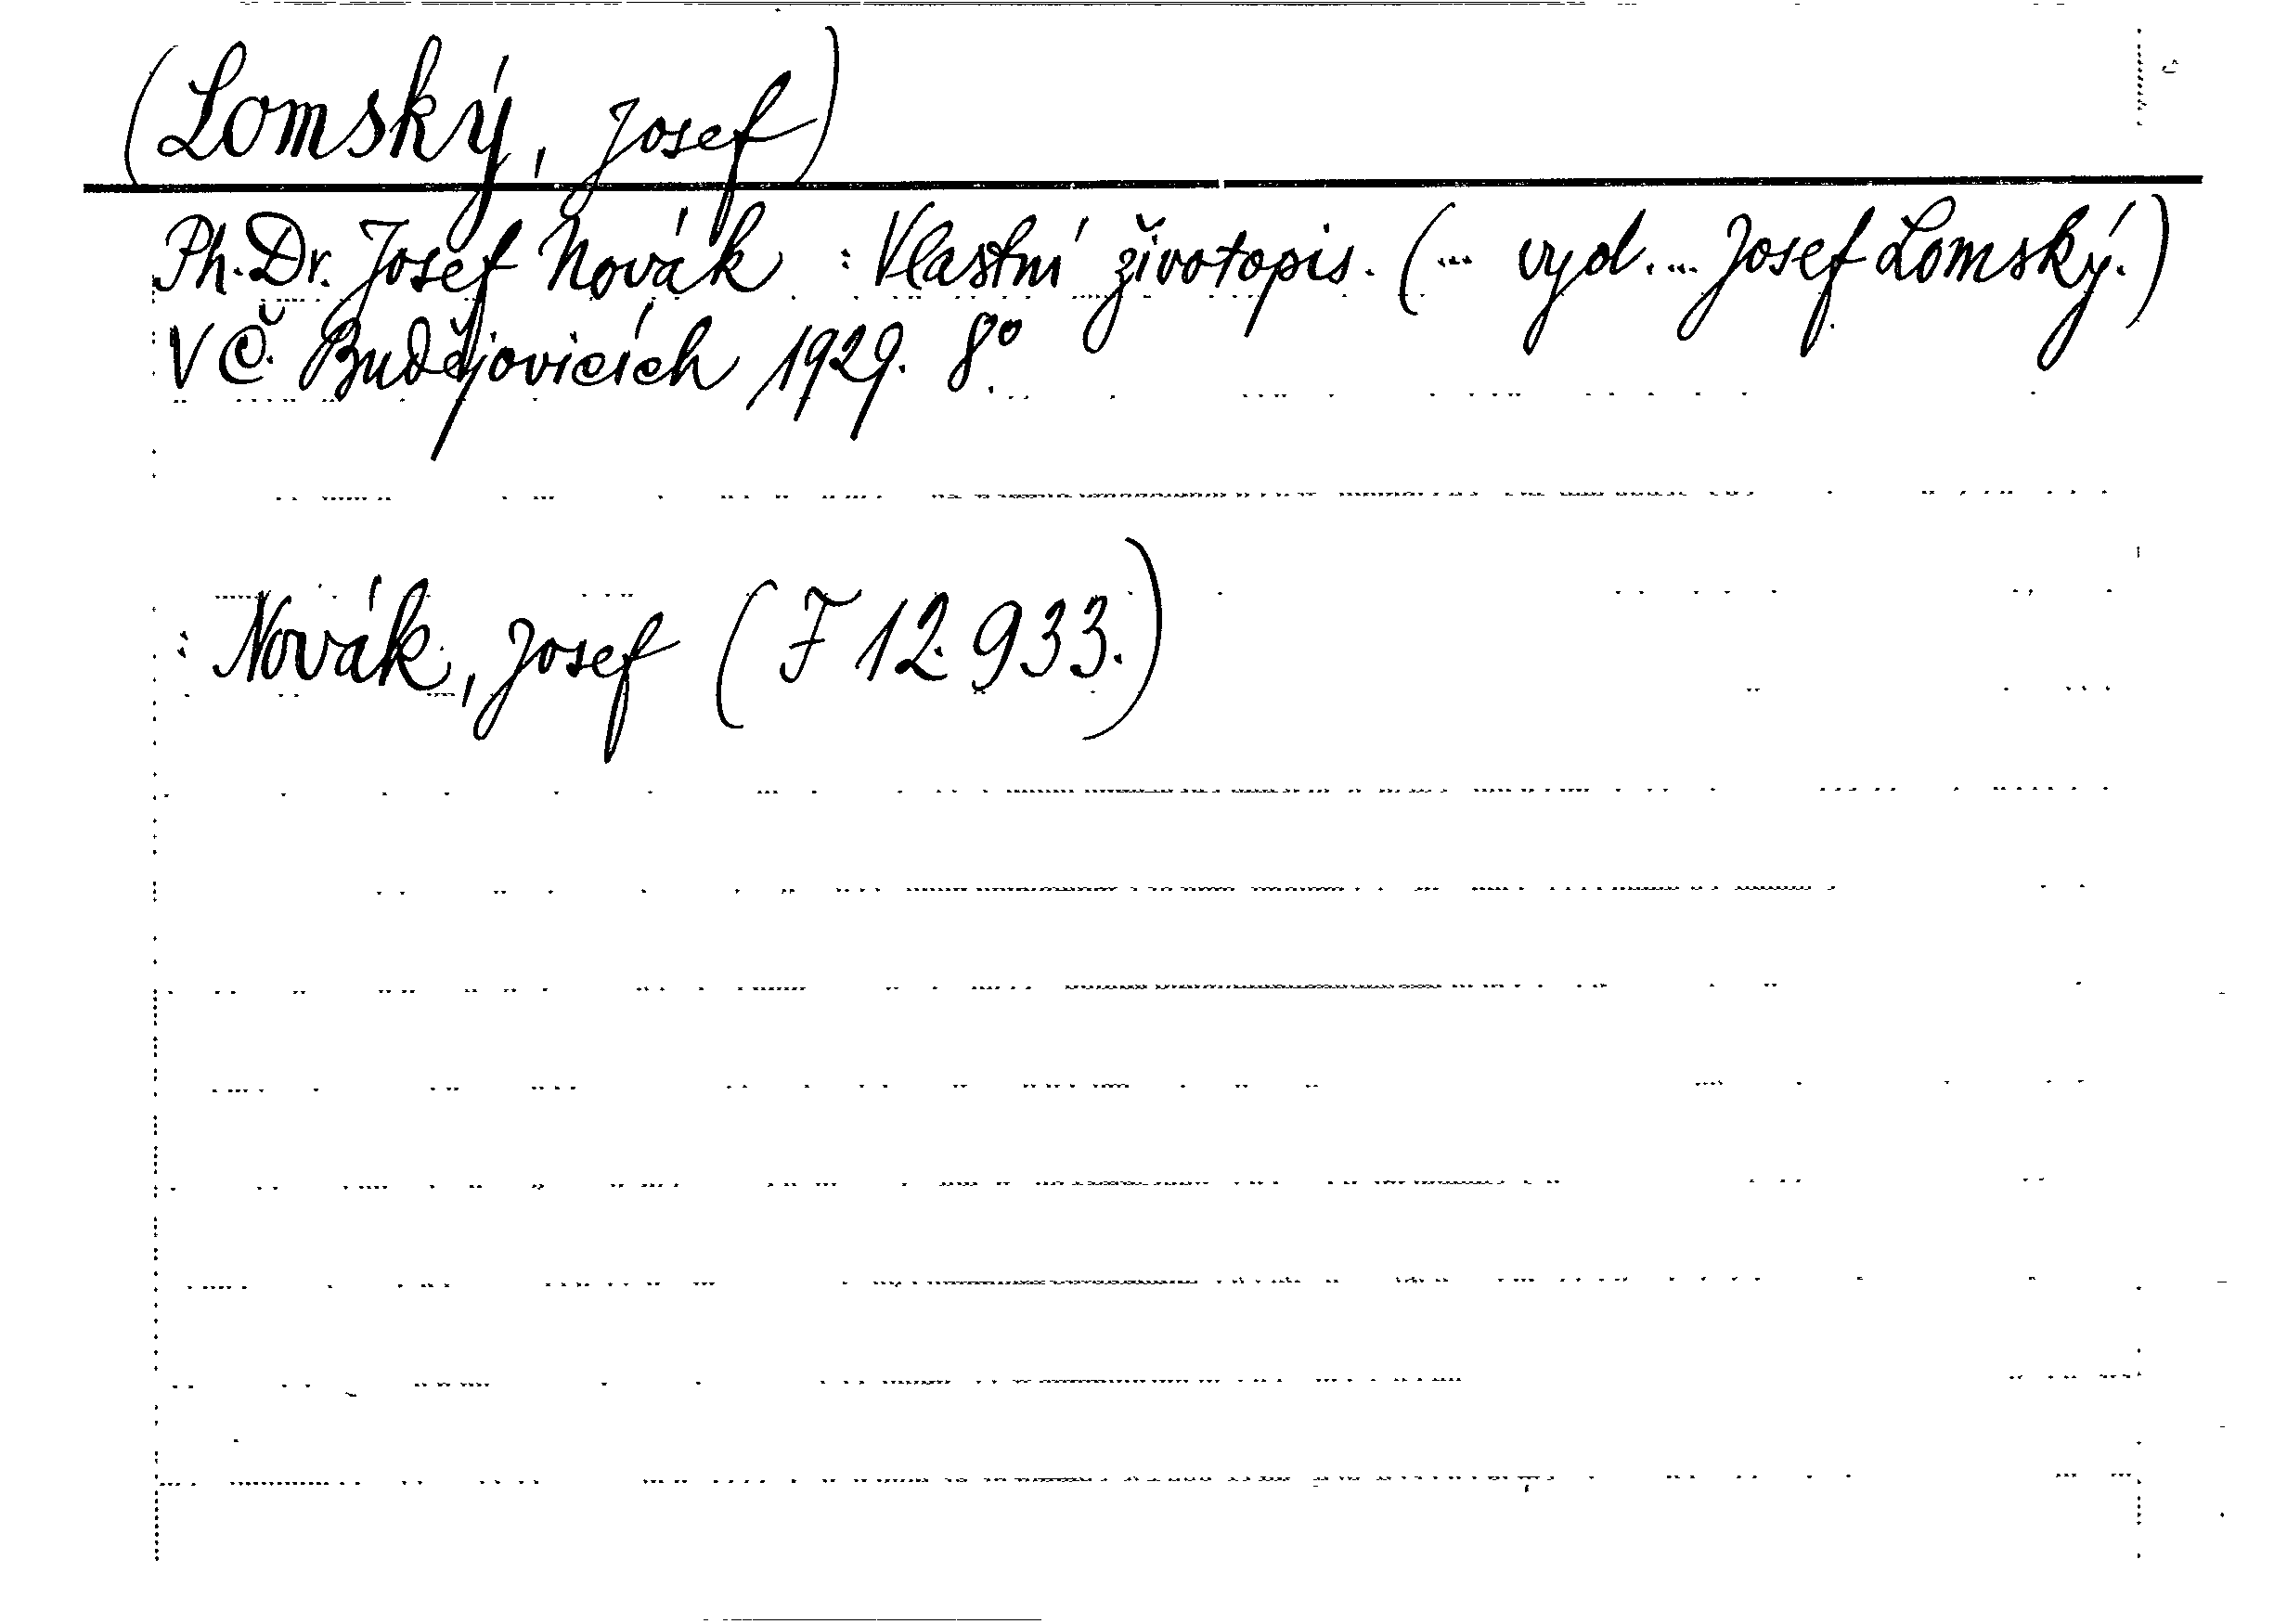 (Lomský, Josef)
Ph.Dr. Josef Novák : Vlastní životopis. (... vyd.... Josef Lomský.)
V Č. Budějovicích 1929. 8°.
: Novák, Josef (F 12.933.)